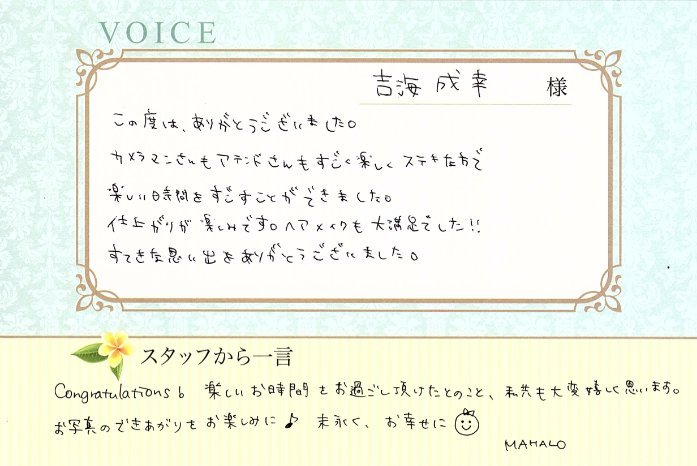 VOICE
吉海 成幸 様
この度は、ありがとうございました。
カメラマンさんもアテンドさんもすごく楽しくステキな方で
楽しい時間をすごすことができました。
仕上がりが楽しみです。ヘアメイクも大満足でした!!
すてきな思い出をありがとうございました。
スタッフから一言
Congratulations 楽しいお時間をお過ごし頂けたとのこと、私共も大変嬉しく思います。
お写真のできあがりをお楽しみに♪ 末永く、お幸せに
MAHALO